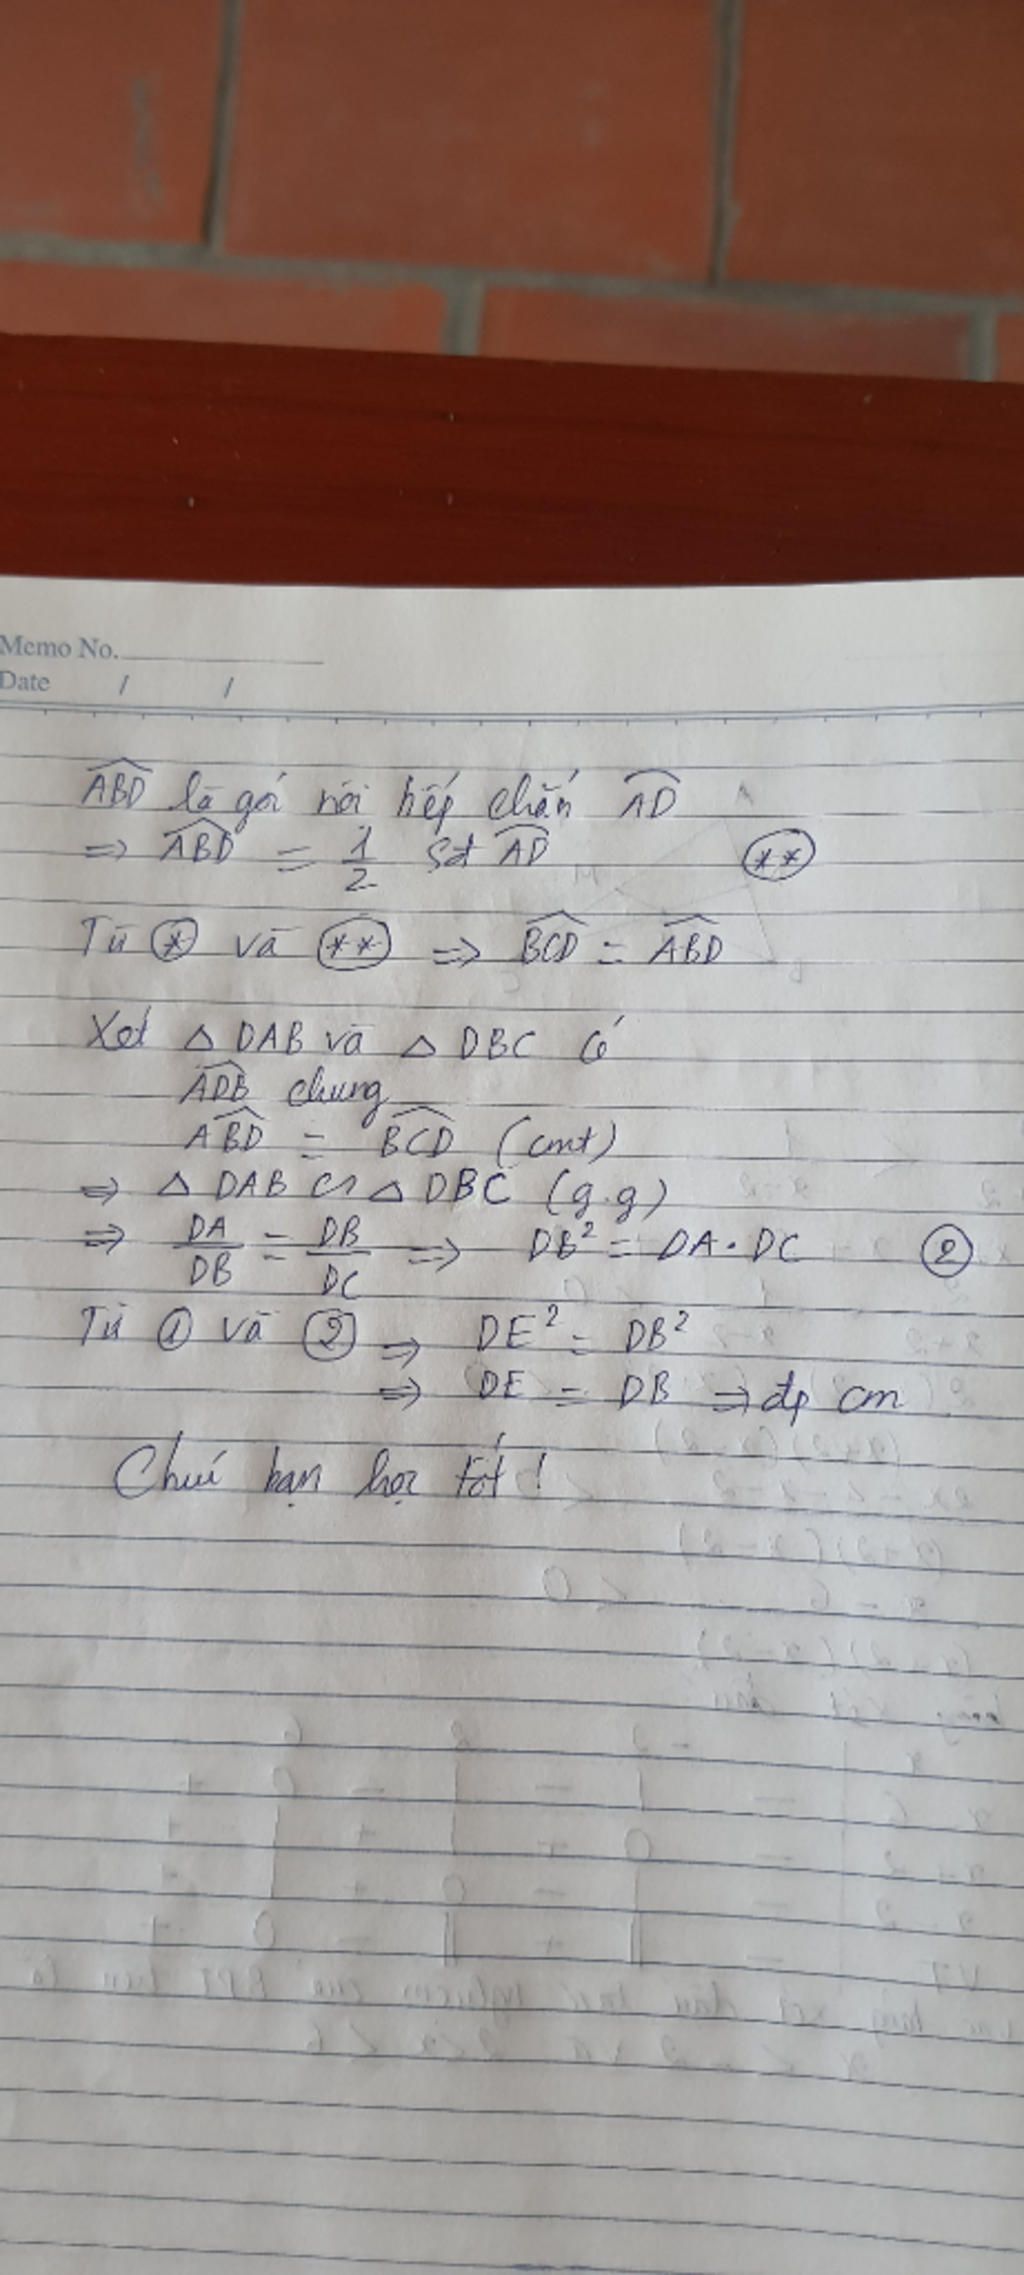 Memo No.
Date / /
ABD là góc nội tiếp chắn AD
=> ABD = 1/2 Sđ AD (**)
Từ (*) và (**) => BCD = ABD
Xét △ DAB và △ DBC có
ADB chung
ABD = BCD (cmt)
=> △ DAB ∽ △ DBC (g.g)
=> DA/DB = DB/DC => DB² = DA . DC (2)
Từ (1) và (2) => DE² = DB²
=> DE = DB => đp cm
Chúc bạn học tốt !